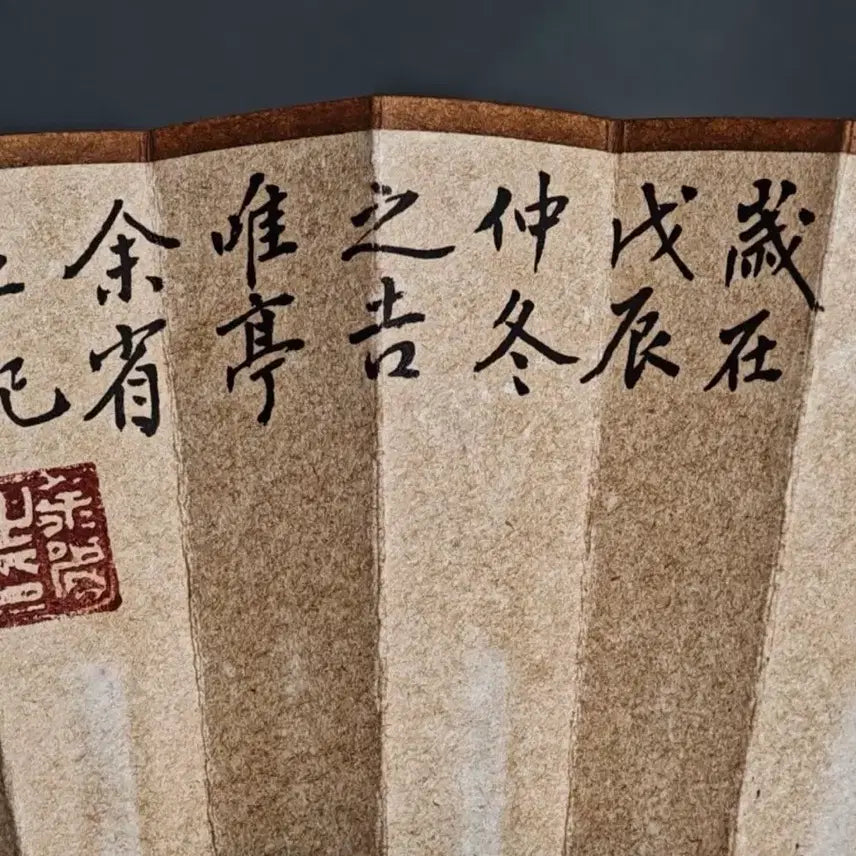 歲在
戊辰
仲冬
之吉
唯亭
余省